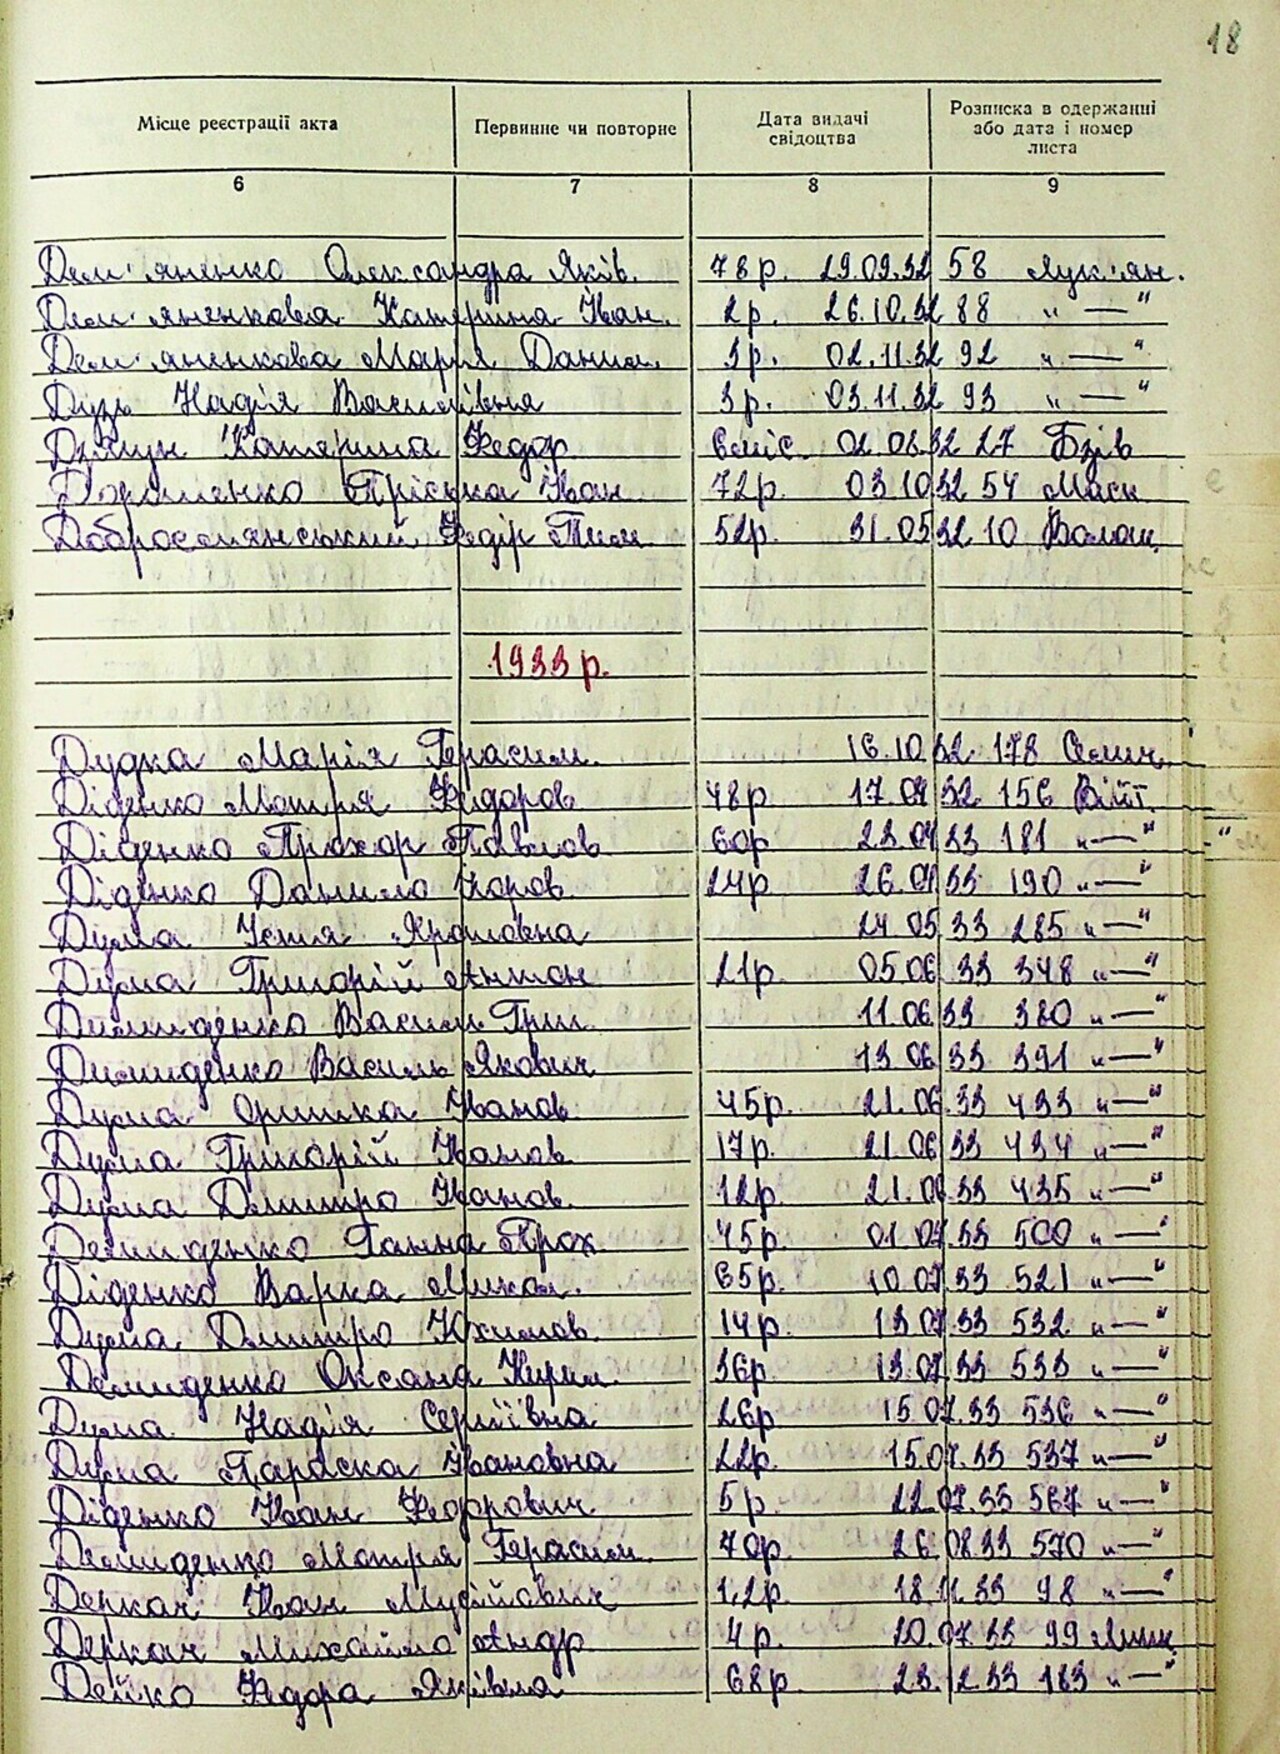 18
Місце реєстрації акта Первинне чи повторне Дата видачі свідоцтва Розписка в одержанні або дата і номер листа
6 7 8 9
Дем'яненко Олександра Яків. 78р. 29.09.32 58 Лук'ян.
Дем'яненкова Катерина Іван. 2р. 26.10.32 88 " — "
Дем'яненкова Марія Данил. 3р. 02.11.32 92 " — "
Дузь Надія Василівна 3р. 03.11.32 93 " — "
Катерина Федор. 6міс. 02.06.32 27 Бзів
Дорошенко Пріська Іван. 72р. 03.10 32 54 Маск.
Добросолянський Федір Тим. 52р. 31.05 32 10 Волош.
1933 р.
Дудка Марія Герасим. 16.10 32 178 Семич.
Діденко Мотря Федоров. 48р 17.04 32 156 Війт.
Діденко Прохор Павлов. 60р 23.04 33 181 " — "
Діденко Данило Ігоров. 24р 26.04 33 190 " — "
Дума Устя 24.05 33 285 " — "
Дума Григорій Антон. 21р. 05.06 33 348 " — "
Демиденко Василь Григ. 11.06 33 380 " — "
Демиденко Василь Якович 13.06 33 391 " — "
Дума Оришка Іванов. 45р. 21.06 33 433 " — "
Дума Григорій Іванов. 17р. 21.06 33 434 " — "
Дума Дмитро Іванов. 12р. 21.06 33 435 " — "
Демиденко Ганна Прох. 45р. 01.07.33 500 " — "
Діденко Варка Микол. 65р. 10.07.33 521 " — "
Дума Дмитро Юхимов. 14р. 13.07.33 532 " — "
Демиденко Оксана Кирил. 36р. 13.07.33 533 " — "
Дума Надія Сергіївна 26р. 15.07.33 536 " — "
Дума Параска Івановна 22р. 15.07.33 537 " — "
Діденко Іван Федорович 5р. 22.07.33 567 " — "
Демиденко Мотря Герасим. 70р. 26.08.33 570 " — "
Деркач Іван Мусійович 1,2р. 18.11.33 98 " — "
Деркач Михайло Андр. 4р. 10.07.33 99
Дейко Федора Яківна 68р. 23.12.33 183 " — "